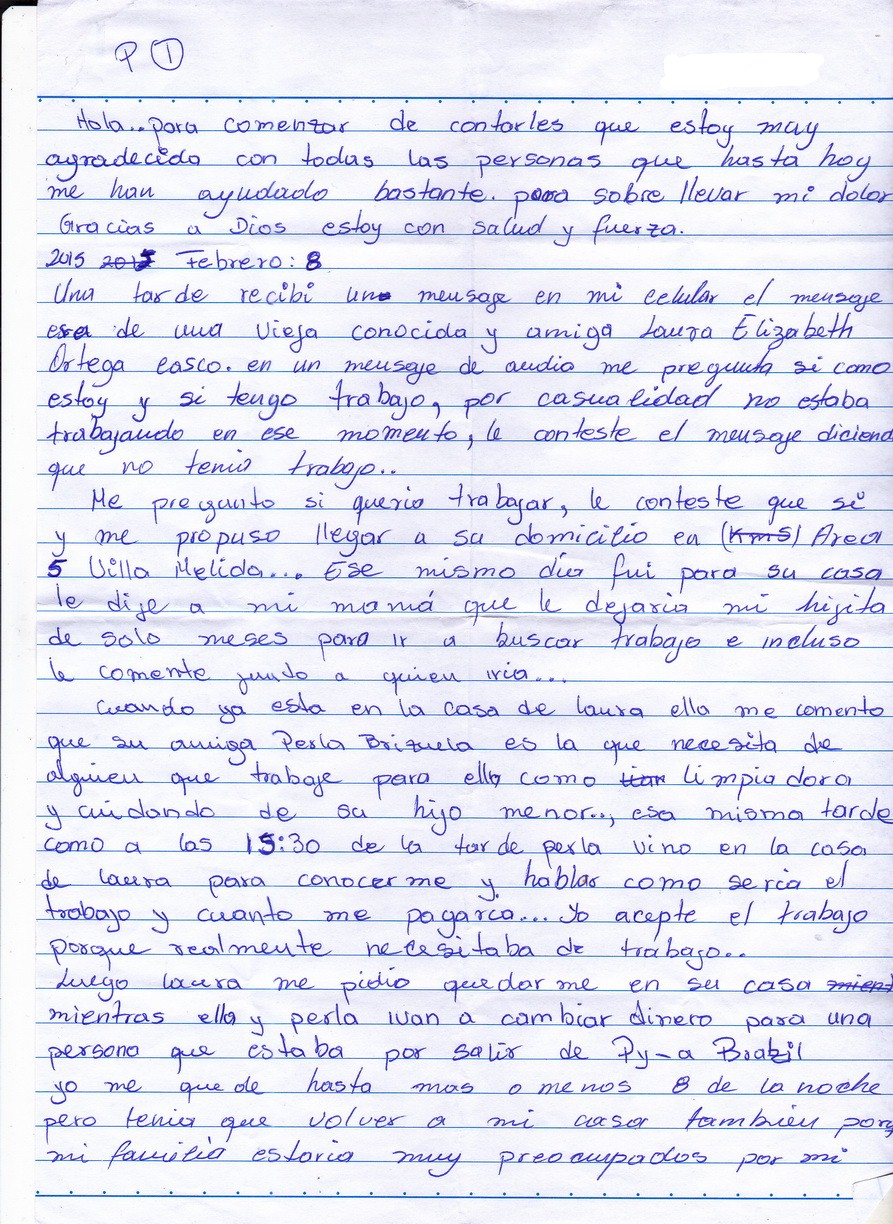 P ①
Hola.. para comenzar de contarles que estoy muy
agradecida con todas las personas que hasta hoy
me han ayudado bastante. para sobre llevar mi dolor
Gracias a Dios estoy con salud y fuerza.
2015 2015 Febrero: 8
Una tarde recibi una mensage en mi celular el mensage
era de una vieja conocida y amiga Laura Elizabeth
Ortega casco. en un mensage de audio me pregunta si como
estoy y si tengo trabajo, por casualidad no estaba
trabajando en ese momento, le conteste el mensage diciend
que no tenia trabajo..
Me pregunto si queria trabajar, le conteste que si
y me propuso llegar a su domicilio en (Kms) Area
5 Villa Melida... Ese mismo dia fui para su casa
le dije a mi mamá que le dejaria mi hijita
de solo meses para ir a buscar trabajo e incluso
le comente junto a quien iria...
Cuando ya esta en la casa de laura ella me comento
que su amiga Perla Brizuela es la que necesita de
alguien que trabaje para ella como limpiadora
y cuidando de su hijo menor.., esa misma tarde
como a las 15:30 de la tarde perla vino en la casa
de laura para conocerme y hablar como seria el
trabajo y cuanto me pagarca... yo acepte el trabajo
porque realmente necesitaba de trabajo..
Luego laura me pidio quedarme en su casa mient
mientras ella y perla ivan a cambiar dinero para una
persona que estaba por salir de Py-a Brazil
yo me quede hasta mas o menos 8 de la noche
pero tenia que volver a mi casa tambien porq
mi familia estaria muy preocupados por mi